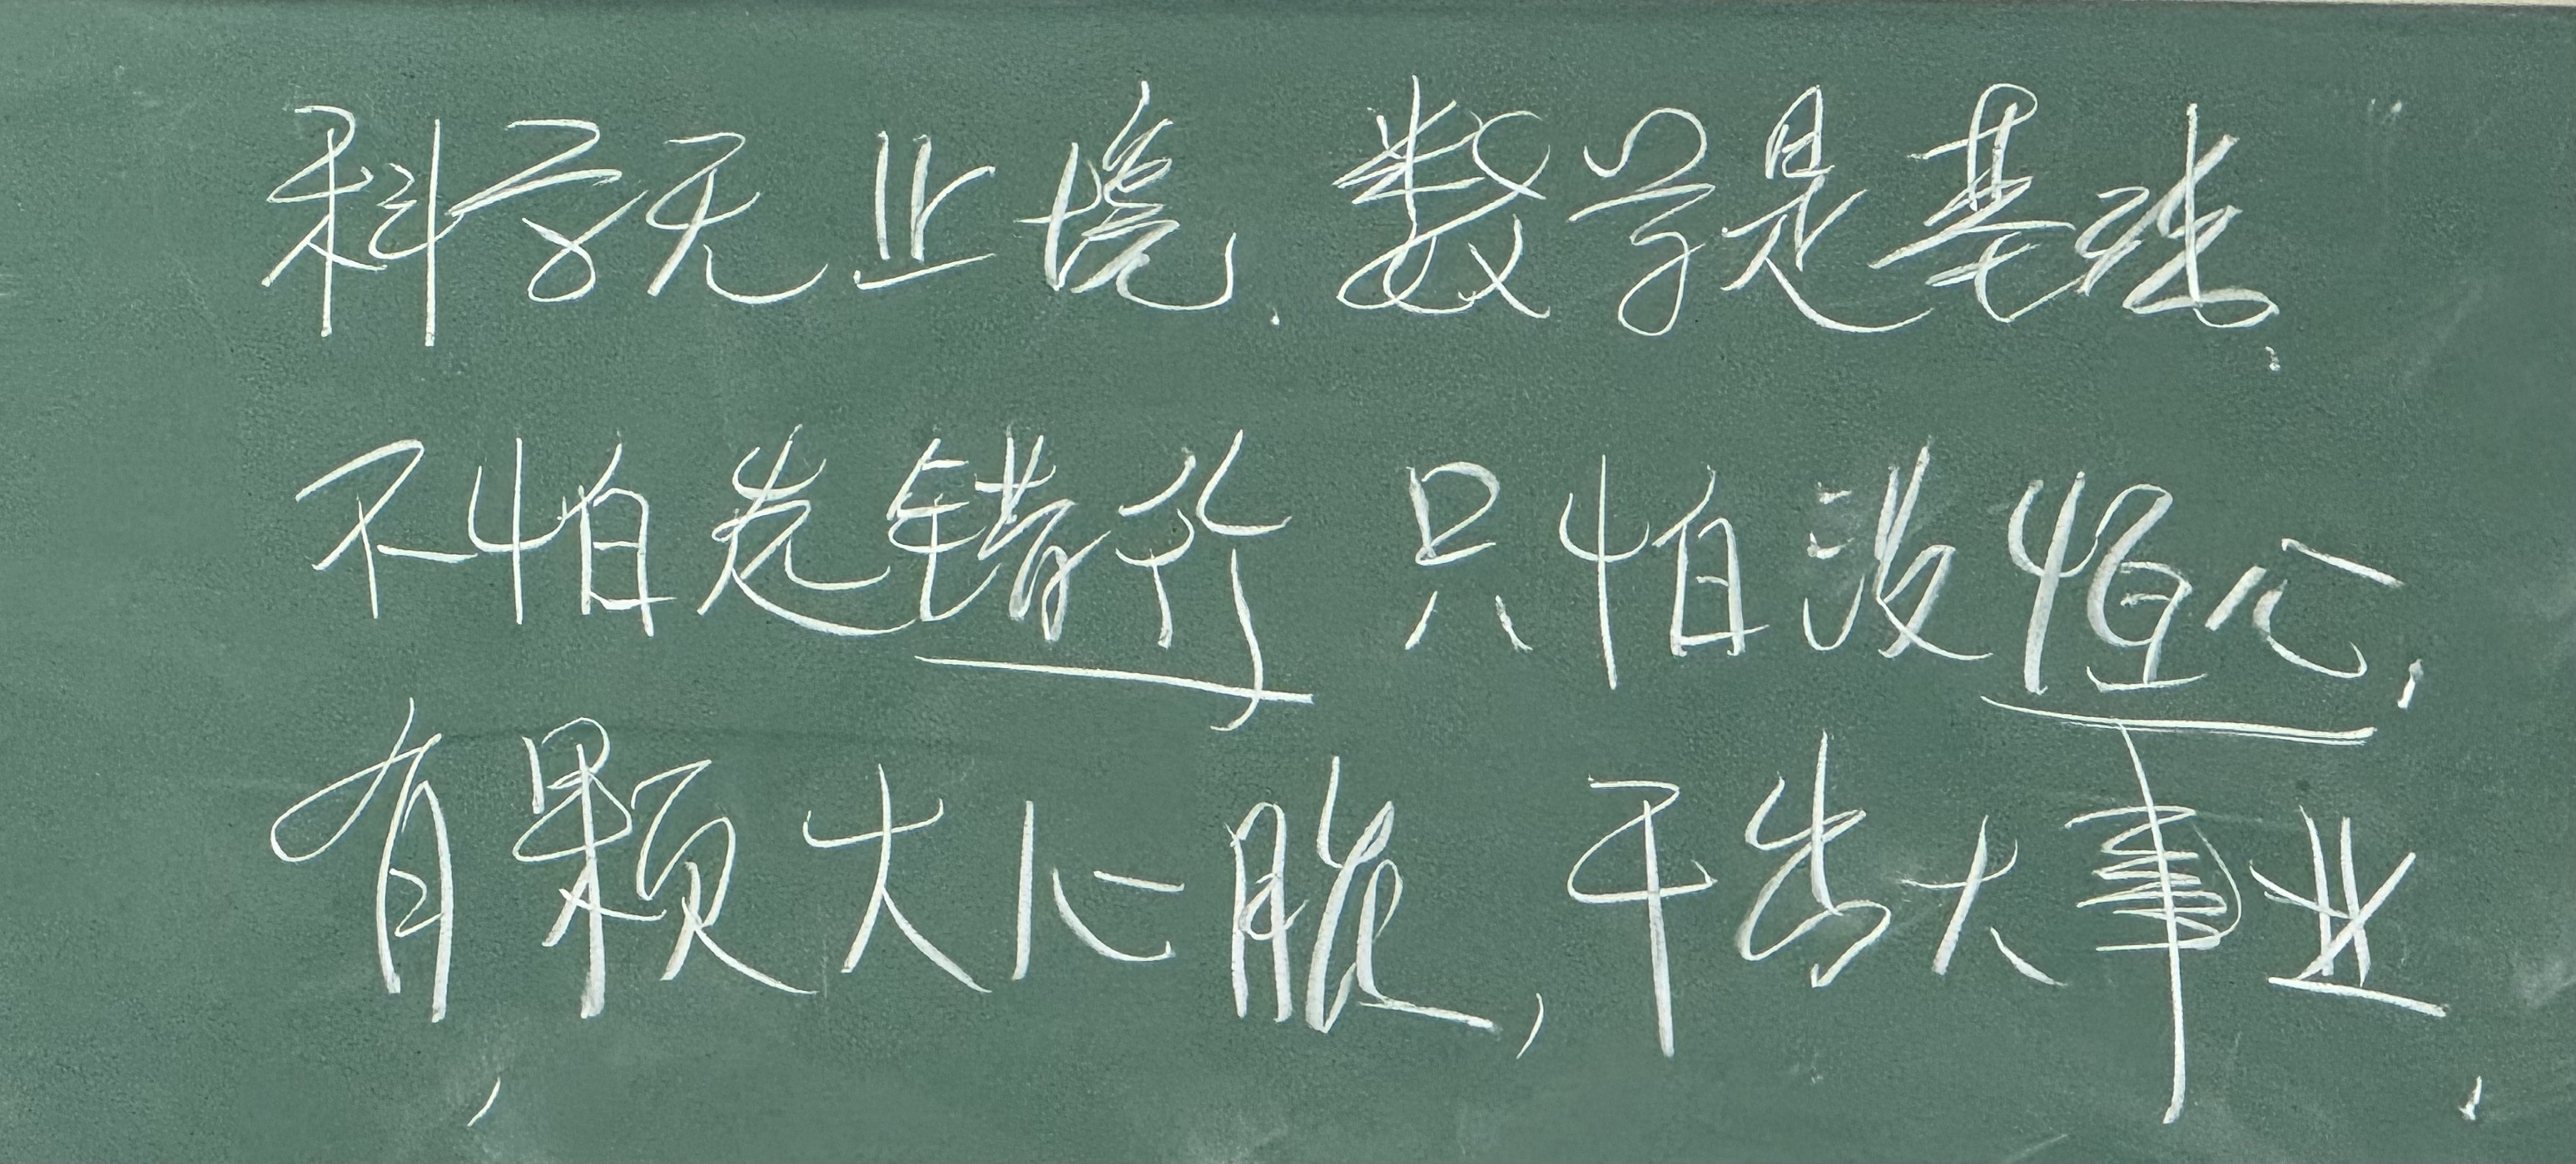 科学无止境.数学是基础.
不怕走错行 只怕没恒心,
有颗大心脏,干出大事业.